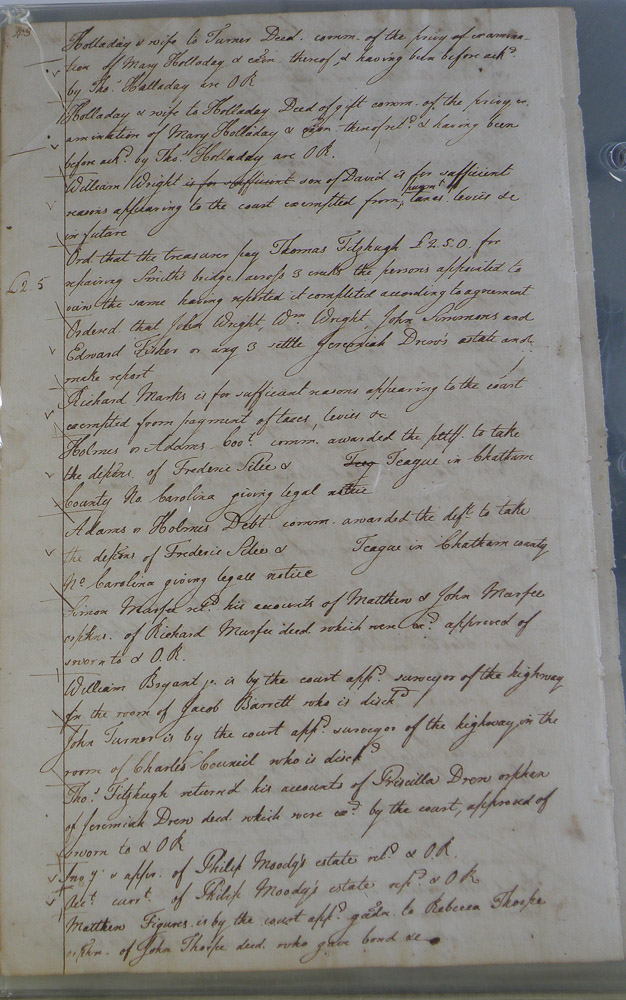 Holladay & wife to Turner Deed. comm. of the privy examina
tion of Mary Holladay & exon thereof, & having been before ackd.
by Thos. Holladay are O R
Holladay & wife to Holladay Deed of gift comm. of the privy ex
amination of Mary Holladay & exon thereof retd. & having been
before ackd. by Thos. Holladay are O R.
William Wright is for sufficient son of David is for sufficient
reasons appearing to the court exempted from paymt. taxes levies &c
in future
£2 5
Ord that the treasurer pay Thomas Fitzhugh £2.5.0. for
repairing Smiths bridge across 3 creeks the persons appointed to
view the same having reported it completed according to agreement
Ordered that John Wright, Wm. Wright, John Simmons and
Edward Fisher or any 3 settle Jeremiah Drew's estate and
make report
Richard Marks is for sufficient reasons appearing to the court
exempted from payment of taxes, levies &c
Holmes vs Adams. comm. awarded the pltff. to take
the depons. of Frederic & Teag Teague in Chatham
County No. Carolina giving legal notice
Adams vs Holmes Debt comm. awarded the deft. to take
the depons of Frederic & Teague in Chatham county
No Carolina giving legall notice
Simon Murfee retd. his accounts of Matthew & John Murfee
orphns. of Richard Murfee deed. which were exd. approved of
sworn to & O.R.
William Bryant jr. is by the court appd. surveyor of the highway
In the room of Jacob Barrett who is dischd
John Turner is by the court appd. surveyor of the highway, in the
room of Charles Council who is dischd
Thos. Fitzhugh returned his accounts of Priscilla Drew orphan
of Jeremiah Drew deed. which were exd. by the court, approved of
sworn to & O R
Invy. & appr. of Philip Moody's estate retd. & O.R.
Act. currt. of Philip Moody's estate retd. & O R
Matthew Figures is by the court appd. guardn. to Rebecca Thorpe
orphn. of John Thorpe deed. who gave bond &c